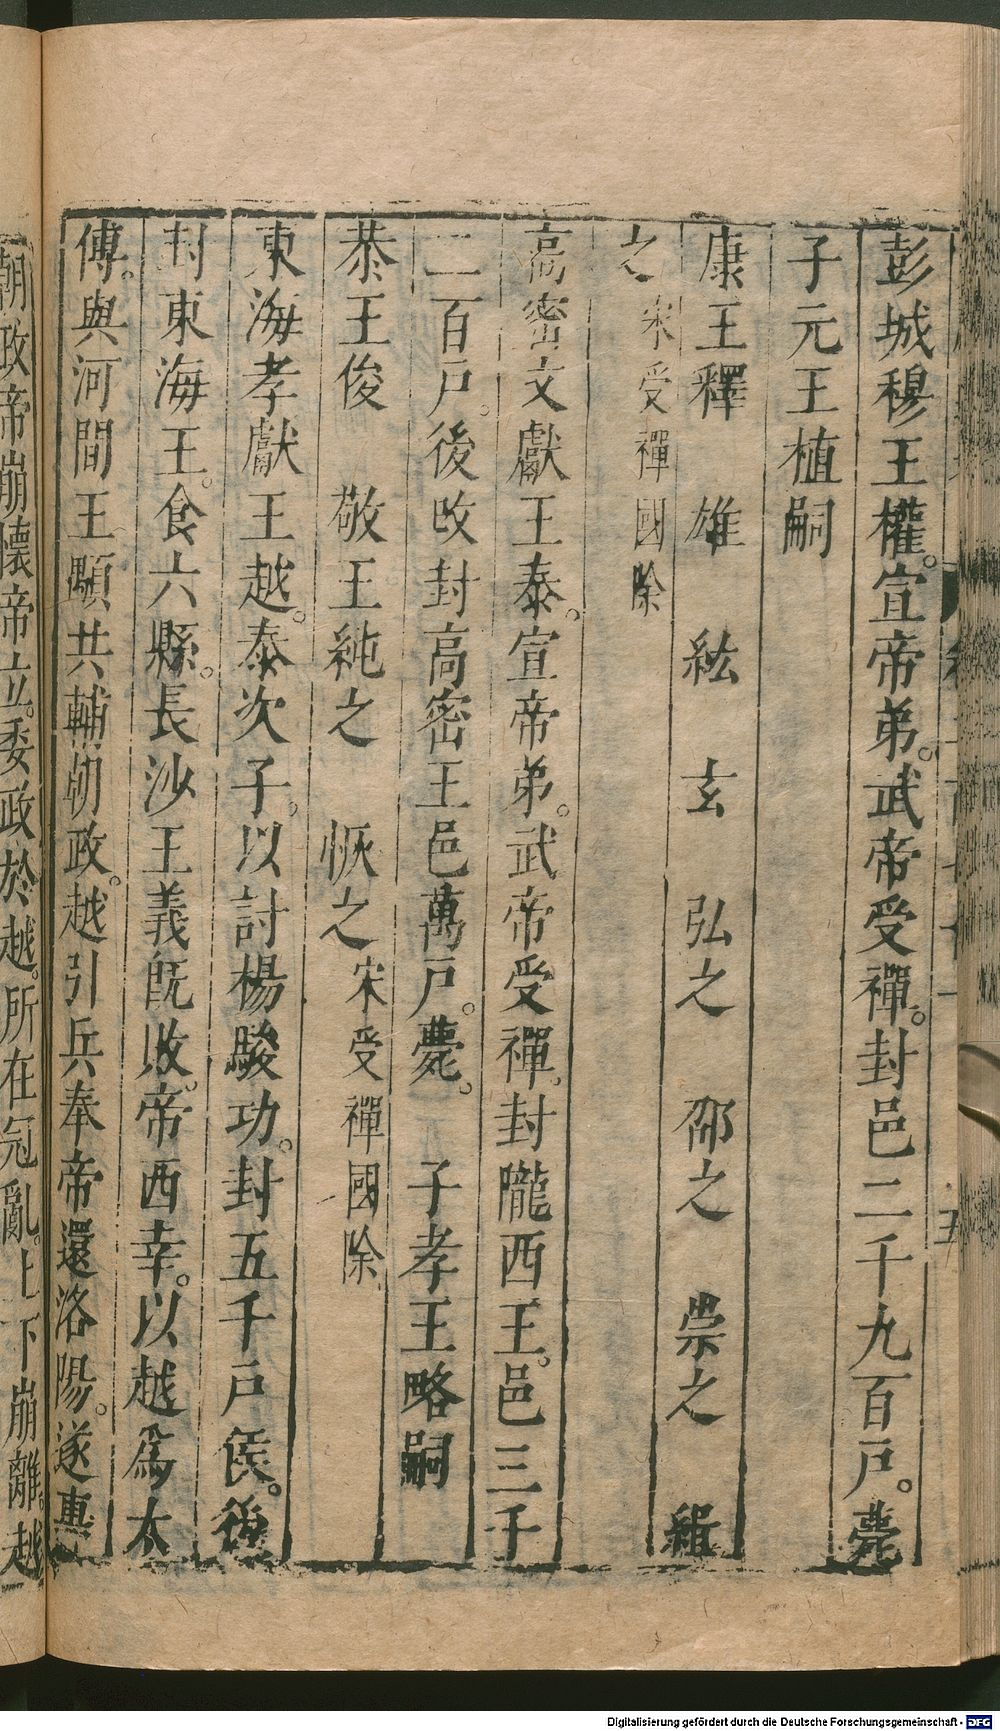 彭城穆王權。宣帝弟。武帝受禪。封邑二千九百戸。薨
子元王植嗣
康王釋　雄　紘　玄　弘之　邵之　崇之　緝
之宋受禪國除
高密文獻王泰。宣帝弟。武帝受禪。封隴西王。邑三千
二百戸。後改封高密王邑萬戸。薨。　子孝王略嗣
恭王俊　敬王純之　恢之宋受禪國除
東海孝獻王越。泰次子。以討楊駿功。封五千戸侯。後
封東海王。食六縣。長沙王義旣敗。帝西幸。以越爲太
傅。與河間王顒共輔朝政。越引兵奉帝還洛陽。遂專
朝政帝崩懷帝立。委政於越。所在冦亂。上下崩離。越
Digitalisierung gefördert durch die Deutsche Forschungsgemeinschaft - DFG